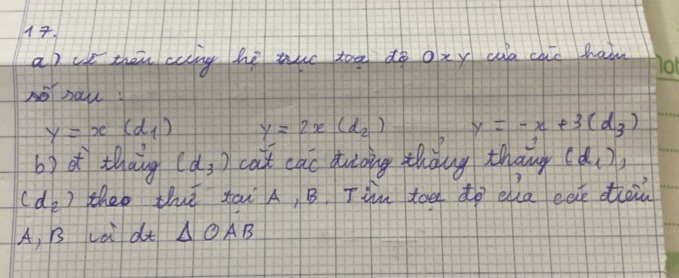 17.
a) vẽ trên cùng hệ trục toạ độ Oxy của các hàm
số sau :
y = x (d₁) y = 2x (d₂) y = -x + 3 (d₃)
b) đ' thẳng (d₃) cắt các đường thẳng thẳng (d₁),
(d₂) theo thứ tại A, B. Tìm toạ độ của các điểm
A, B và dt Δ OAB